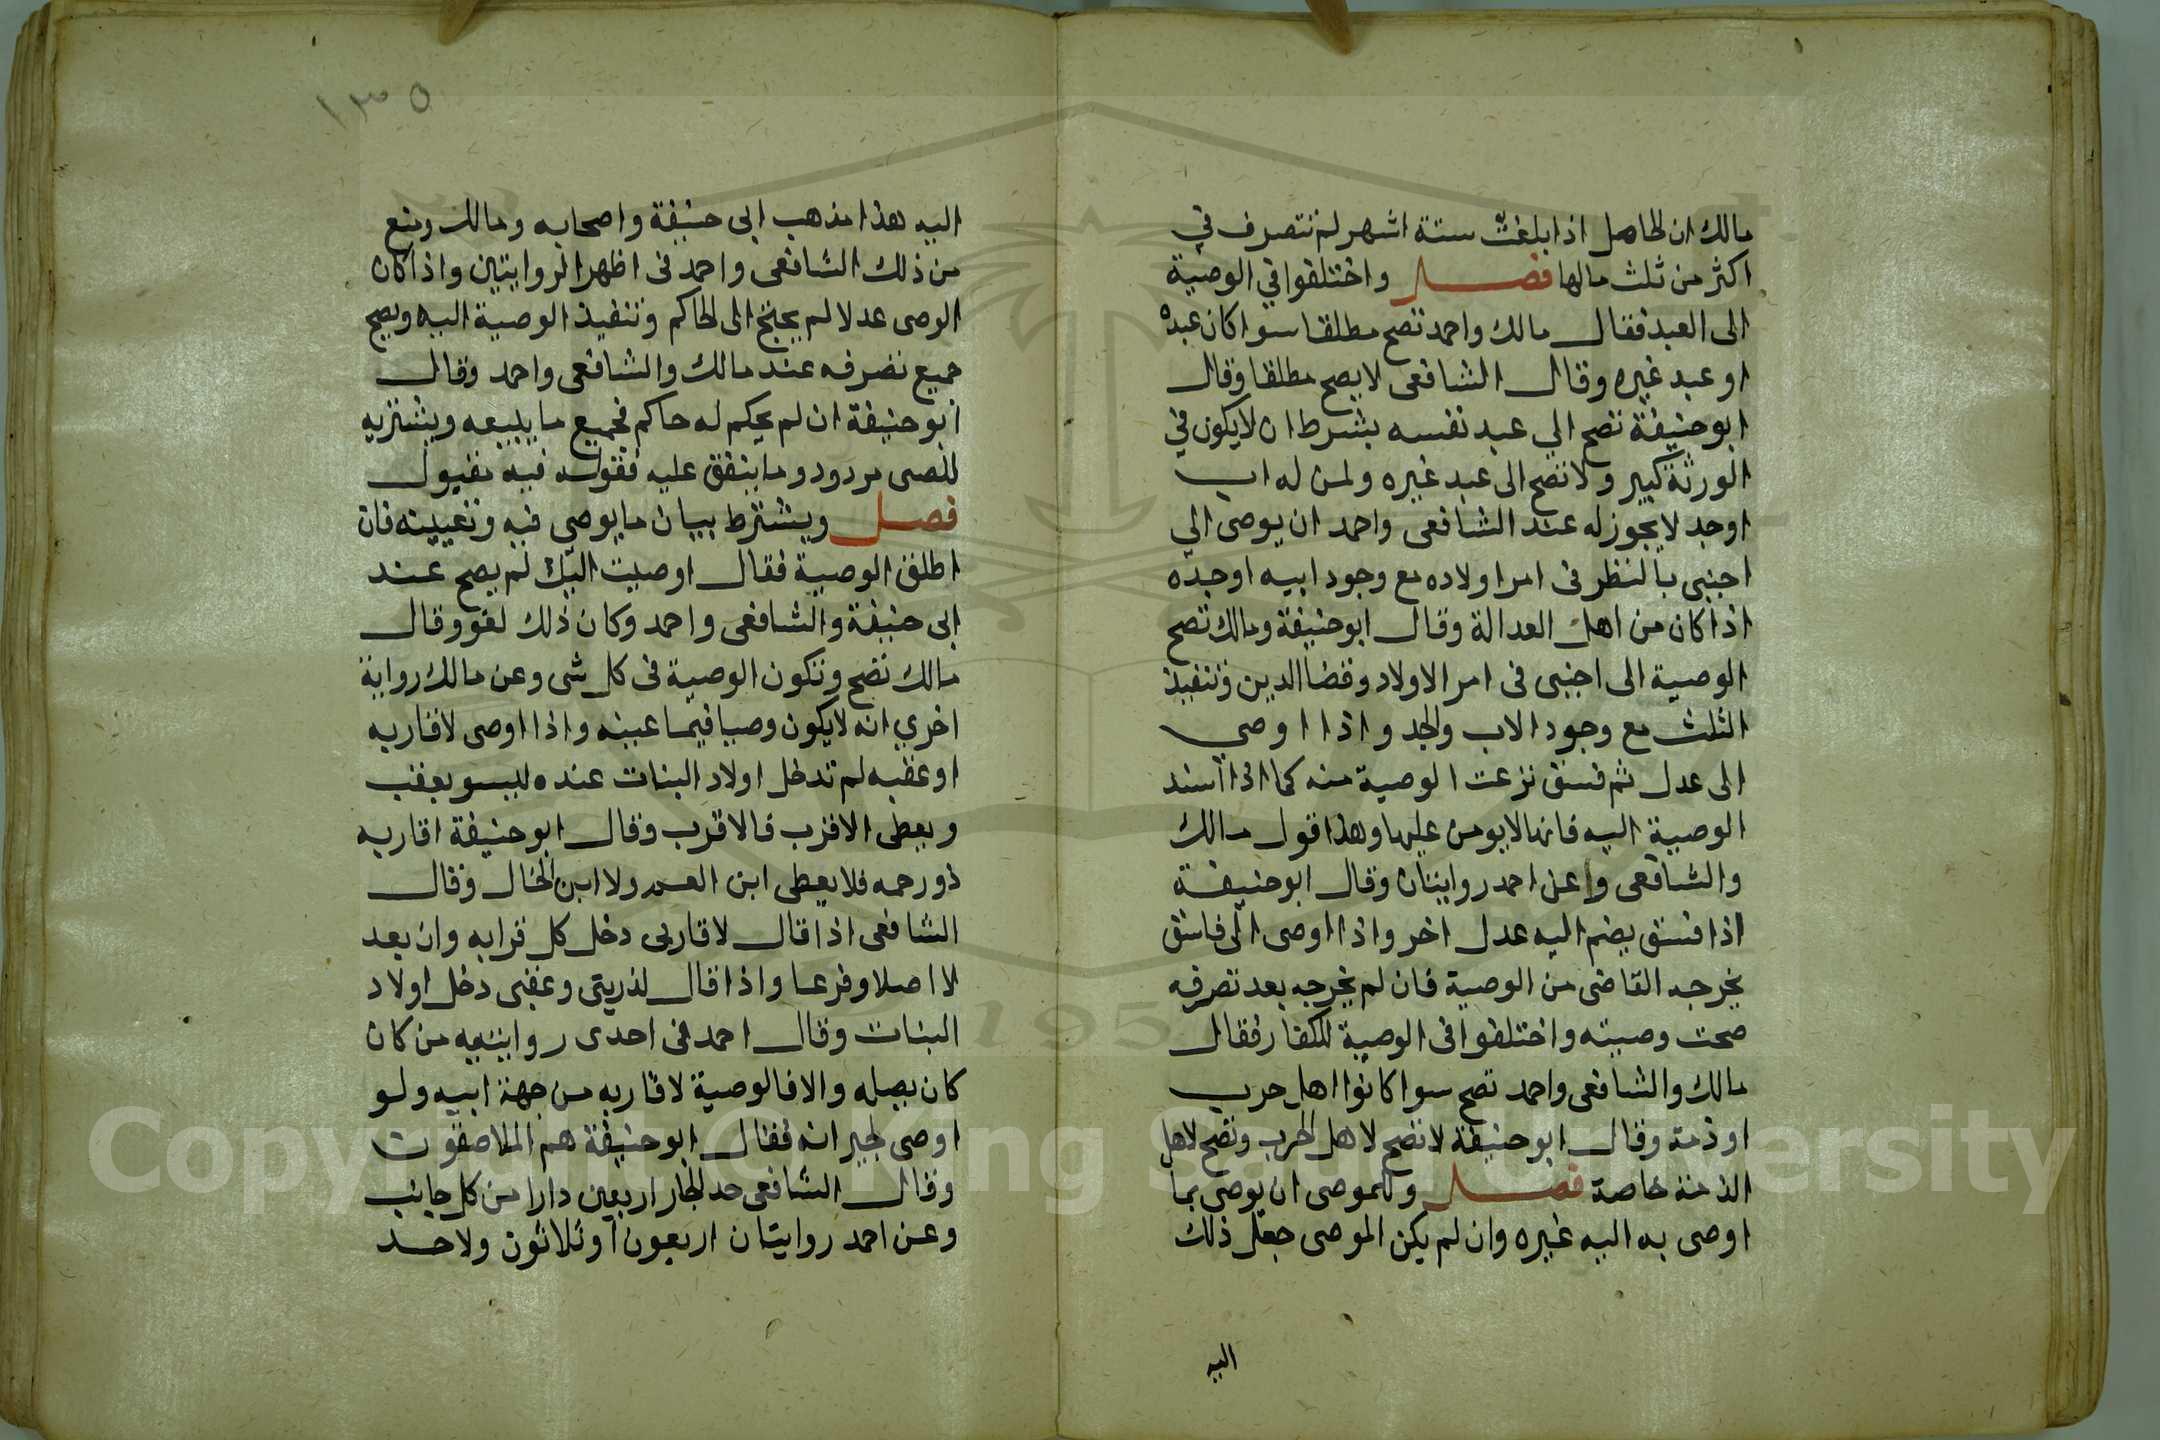 مالك ان الحامل اذا بلغت ستة اشهر لم تتصرف في
اكثر من ثلث مالها فصل واختلفوا في الوصية
الى العبد فقال مالك واحمد تصح مطلقا سوا كان عبده
او عبد غيره وقال الشافعى لا يصح مطلقا وقال
ابو حنيفة تصح الي عبد نفسه بشرط ان لا يكون في
الورثة كبير ولا تصح الى عبد غيره ولمن له اب
اوجد لا يجوز له عند الشافعى واحمد ان يوصى الي
اجنبى بالنظر فى امر اولاده مع وجود ابيه او جده
اذا كان من اهل العدالة وقال ابو حنيفة ومالك تصح
الوصية الى اجنبى فى امر الاولاد وقضا الدين وتنفيذ
الثلث مع وجود الاب والجد واذا اوصي
الى عدل ثم فسق نزعت الوصية منه كما اذا اسند
الوصية اليه فانه لا يومن عليها وهذا قول مالك
والشافعى وعن احمد روايتان وقال ابو حنيفة
اذا فسق يضم اليه عدل اخر واذا اوصى الى فاسق
يخرجه القاضى من الوصية فان لم يخرجه بعد تصرفه
صحت وصيته واختلفوا فى الوصية للكفار فقال
مالك والشافعى واحمد تصح سوا كانوا اهل حرب
او ذمة وقال ابو حنيفة لا تصح لاهل الحرب وتصح لاهل
الذمة خاصة فصل وللموصى ان يوصى بما
اوصى به اليه غيره وان لم يكن الموصى جعل ذلك
اليه
١٣٥
اليه هذا مذهب ابى حنيفة واصحابه ومالك ومنع
من ذلك الشافعى واحمد فى اظهر الروايتين واذا كان
الوصى عدلا لم يحتج الى الحاكم وتنفيذ الوصية اليه ويصح
جميع تصرفه عند مالك والشافعى واحمد وقال
ابو حنيفة ان لم يحكم له حاكم فجميع ما يبيعه ويشتريه
للصى مردود وما ينفق عليه فقوله فيه مقبول
فصل ويشترط بيان ما يوصي فيه وتعيينه فان
اطلق الوصية فقال اوصيت اليك لم يصح عند
ابى حنيفة والشافعى واحمد وكان ذلك لغو وقال
مالك تصح وتكون الوصية فى كل شى وعن مالك رواية
اخري انه لا يكون وصيا فيما عينه واذا اوصى لاقاربه
او عقبه لم تدخل اولاد البنات عنده ليسو بعقب
ويعطى الاقرب فالاقرب وقال ابو حنيفة اقاربه
ذو رحمه فلا يعطى ابن العم ولا ابن الخال وقال
الشافعى اذا قال لاقاربى دخل كل قرابه وان بعد
لا اصلا وفرعا واذا قال لذريتى وعقبى دخل اولاد
البنات وقال احمد فى احدى روايتيه من كان
كان يصله والا فالوصية لاقاربه من جهة ابيه ولو
اوصى لجيرانه فقال ابو حنيفة هم الملاصقون
وقال الشافعى حد الجار اربعين دارا من كل جانب
وعن احمد روايتان اربعون او ثلاثون ولا حد
Copyright © King Saud University
195